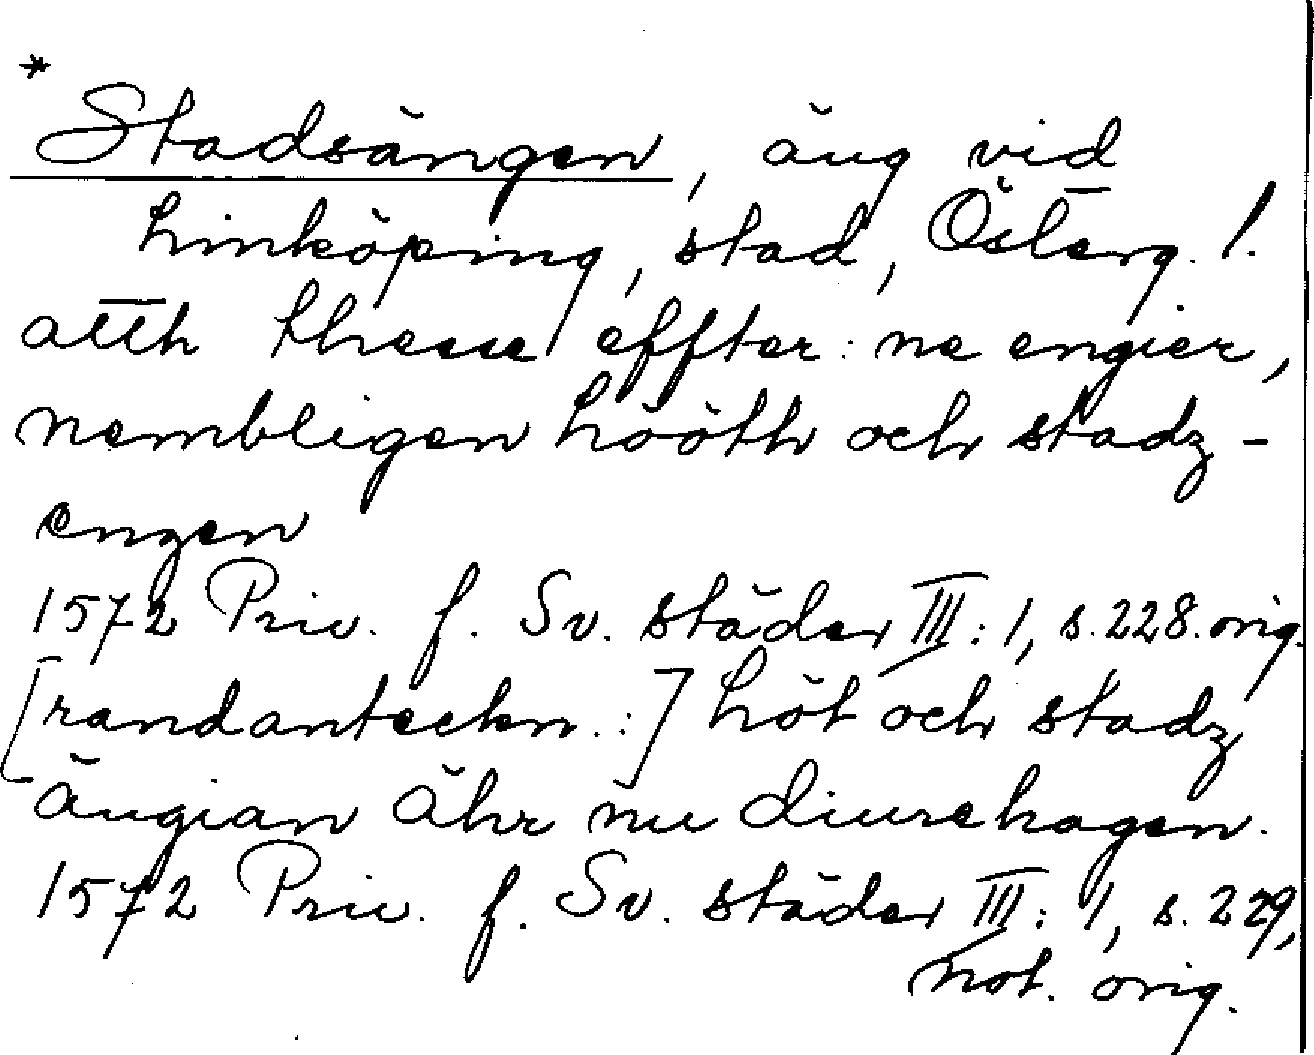 *
Stadsängen, äng vid
Linköping, stad, Österg. l.
atth thesse effter:ne engier,
nembligen Hööth och stadz-
engen
1572 Priv. f. Sv. städer III:1, s.228. orig.
[randanteckn.:] Höt och stadz
ängian ähr nu diurehagen.
1572 Priv. f. Sv. städer III:1, s.229,
not. orig.